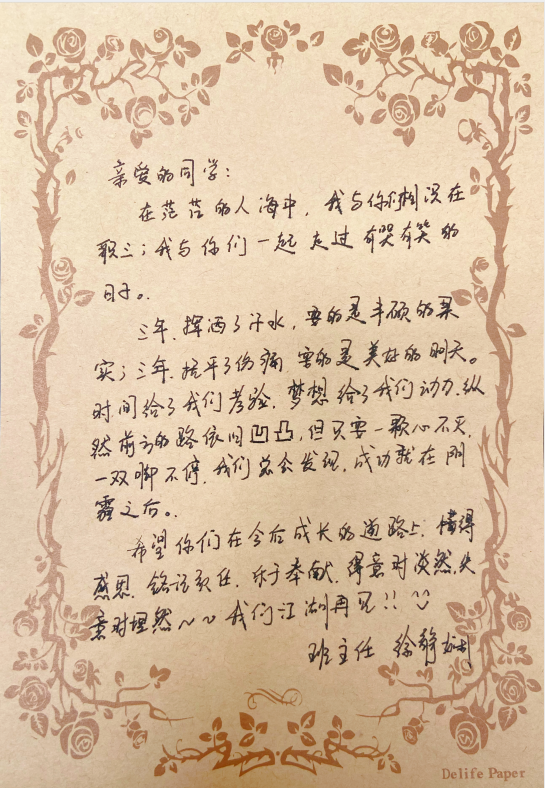 亲爱的同学：
在茫茫的人海中，我与你们相识在
职三；我与你们一起走过有哭有笑的
日子。
三年，挥洒了汗水，要的是丰硕的果
实；三年，抚平了伤痛，要的是美好的明天。
时间给了我们考验，梦想给了我们动力，纵
然前方的路依旧凹凸，但只要一颗心不灭，
一双脚不停，我们总会发现，成功就在阴
霾之后。
希望你们在今后成长的道路上，懂得
感恩，铭记责任，乐于奉献，得意时淡然，失
意时坦然~~我们江湖再见!!
班主任 徐静
Delife Paper